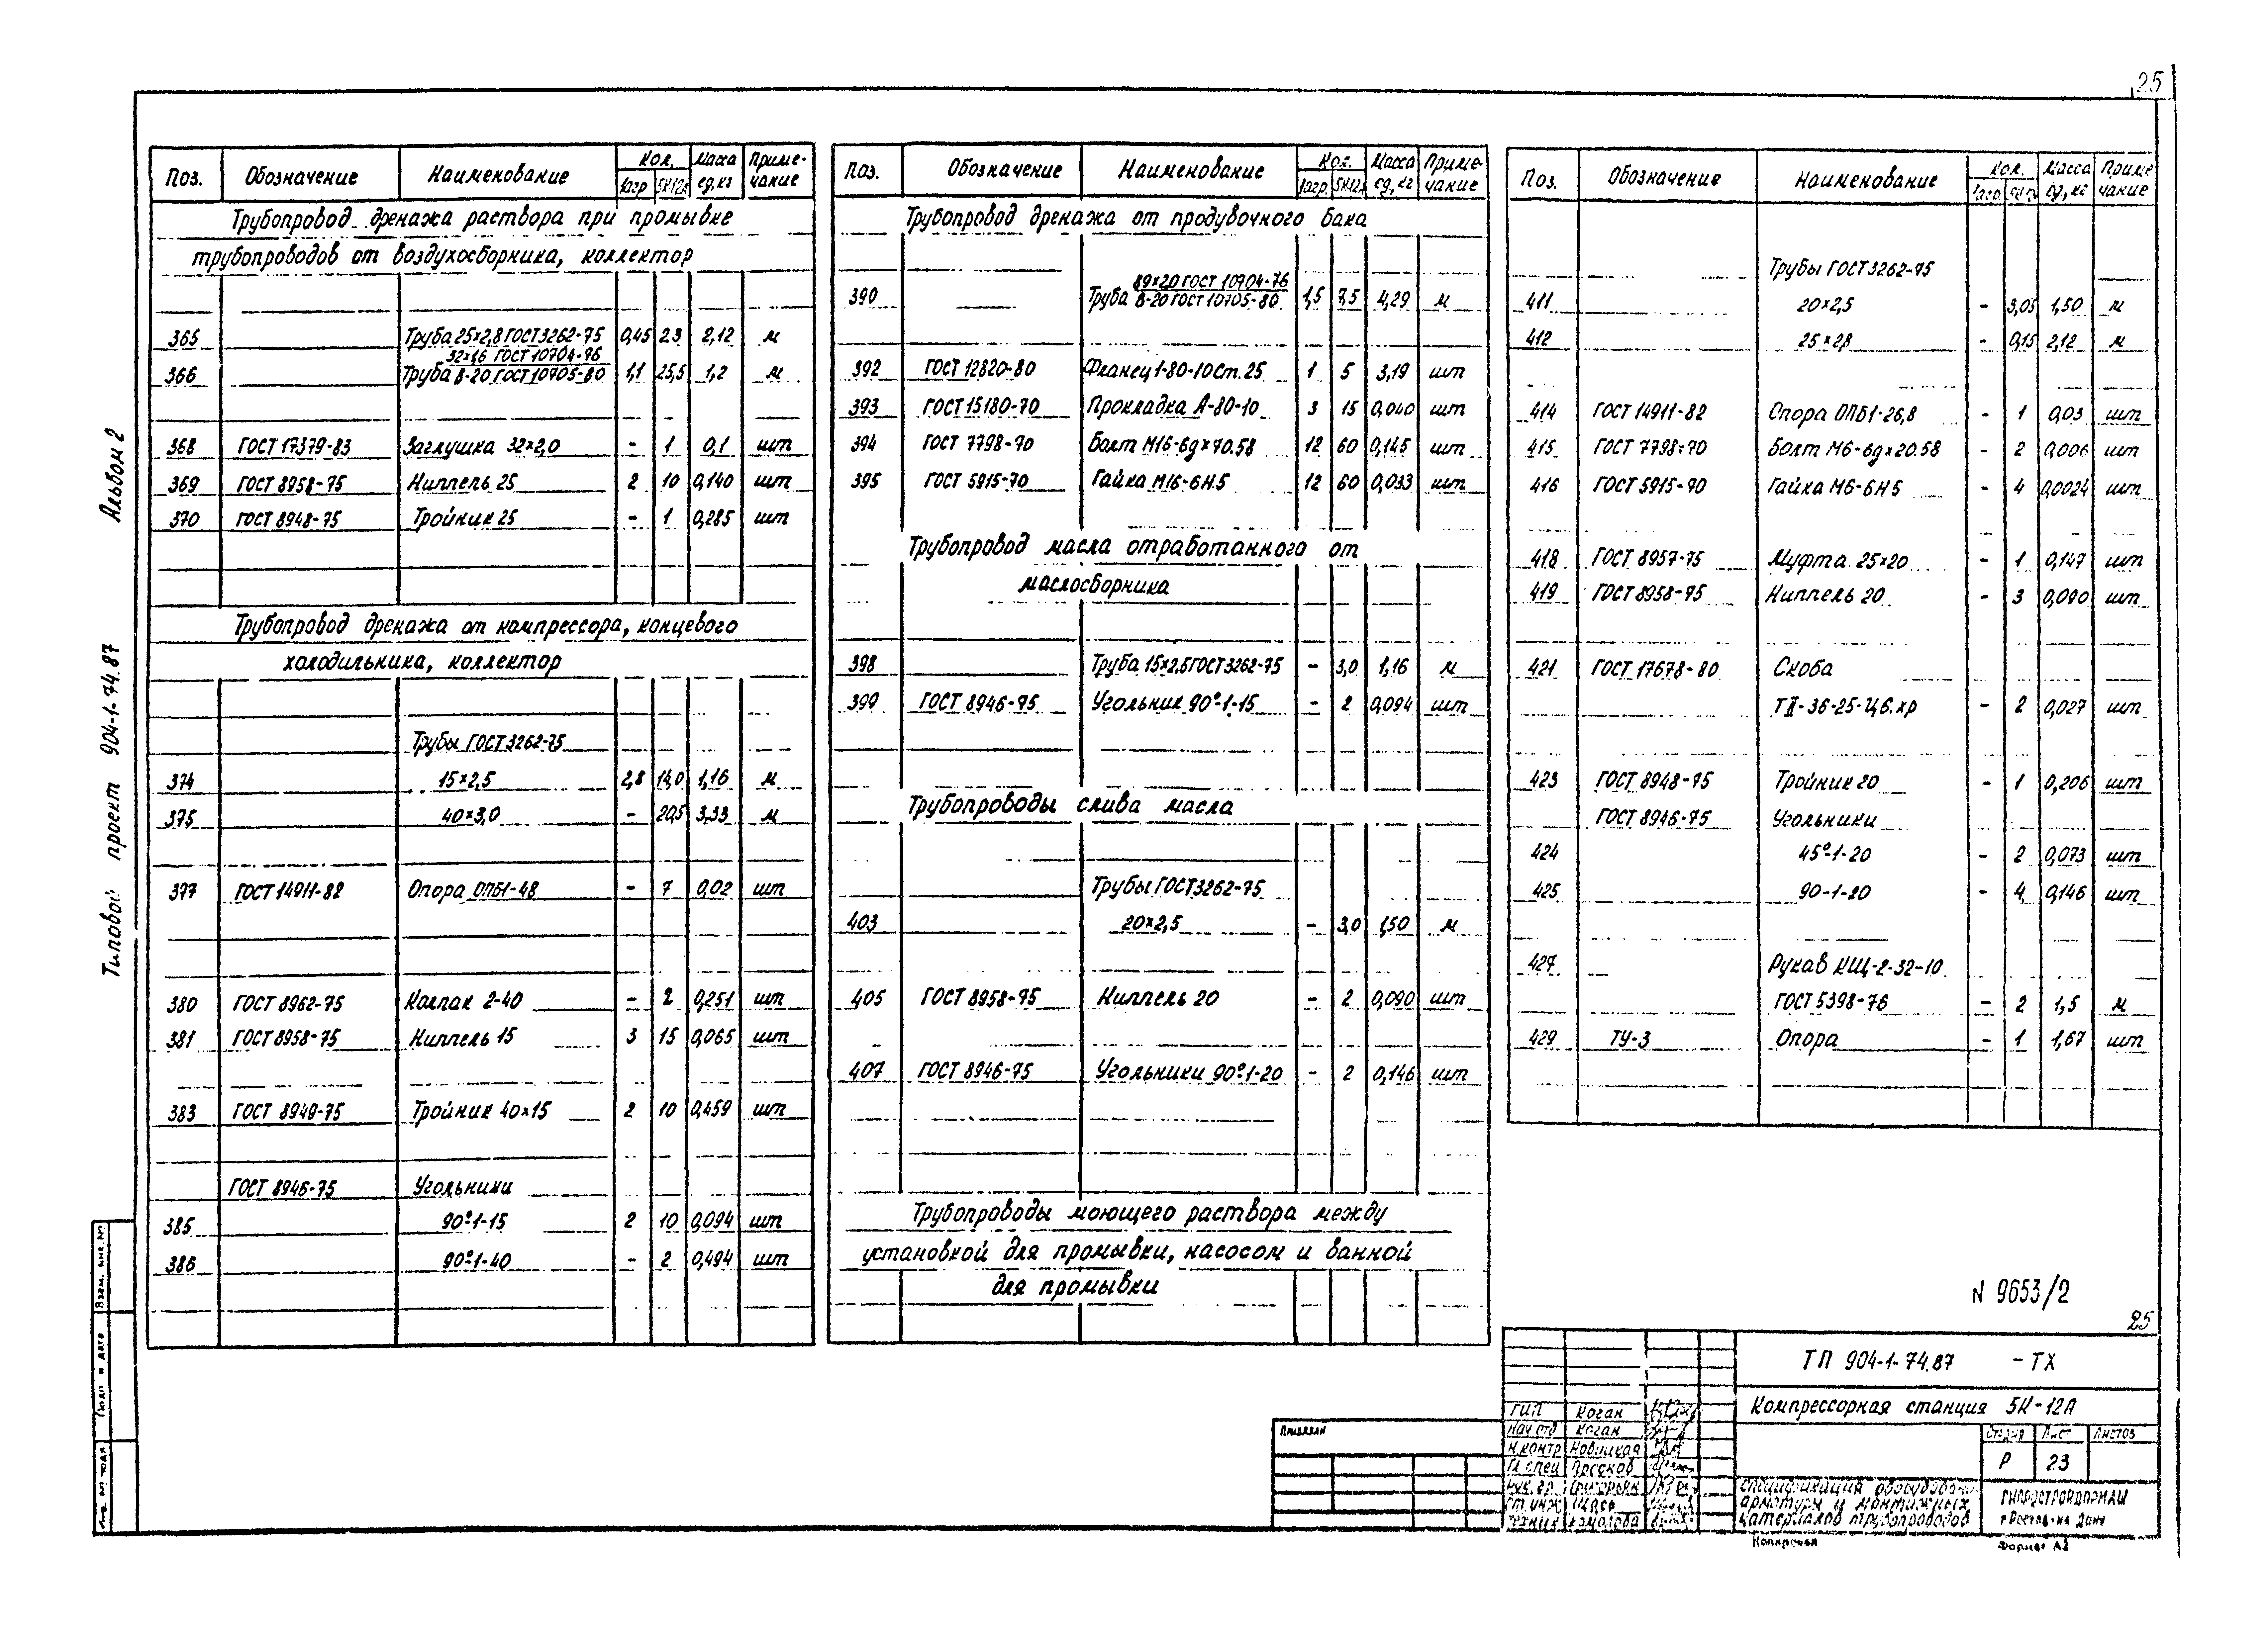 25
Альбом 2
Типовой проект 904-1-74.87
Поз. Обозначение Наименование Кол. Масса ед, кг Приме-чание
1агр 5К-12А
Трубопровод дренажа раствора при промывке
трубопроводов от воздухосборника, коллектор
365 Труба 25×2,8 ГОСТ 3262-75 0,45 23 2,12 м
32×1,6 ГОСТ 10704-76
366 Труба В-20 ГОСТ 10705-80 1,1 25,5 1,2 м
368 ГОСТ 17379-83 Заглушка 32×2,0 - 1 0,1 шт
369 ГОСТ 8958-75 Ниппель 25 2 10 0,140 шт
370 ГОСТ 8948-75 Тройник 25 - 1 0,285 шт
Трубопровод дренажа от компрессора, концевого
холодильника, коллектор
Трубы ГОСТ 3262-75
374 15×2,5 2,8 14,0 1,16 м
375 40×3,0 - 20,5 3,33 м
377 ГОСТ 14911-82 Опора ОПБ1-48 - 7 0,02 шт
380 ГОСТ 8962-75 Колпак 2-40 - 2 0,251 шт
381 ГОСТ 8958-75 Ниппель 15 3 15 0,065 шт
383 ГОСТ 8949-75 Тройник 40×15 2 10 0,459 шт
ГОСТ 8946-75 Угольники
385 90°-1-15 2 10 0,094 шт
386 90°-1-40 - 2 0,494 шт
Поз. Обозначение Наименование Кол. Масса ед, кг Приме-чание
1агр. 5К-12А
Трубопровод дренажа от продувочного бака
89×20 ГОСТ 10704-76
390 Труба В-20 ГОСТ 10705-80 1,5 7,5 4,29 м
392 ГОСТ 12820-80 Фланец 1-80-10 Ст.25 1 5 3,19 шт
393 ГОСТ 15180-70 Прокладка А-80-10 3 15 0,040 шт
394 ГОСТ 7798-70 Болт М16-6g×70.58 12 60 0,145 шт
395 ГОСТ 5915-70 Гайка М16-6Н.5 12 60 0,033 шт
Трубопровод масла отработанного от
маслосборника
398 Труба 15×2,5 ГОСТ 3262-75 - 3,0 1,16 м
399 ГОСТ 8946-75 Угольник 90°-1-15 - 2 0,094 шт
Трубопроводы слива масла
Трубы ГОСТ 3262-75
403 20×2,5 - 3,0 1,50 м
405 ГОСТ 8958-75 Ниппель 20 - 2 0,090 шт
407 ГОСТ 8946-75 Угольники 90°-1-20 - 2 0,146 шт
Трубопроводы моющего раствора между
установкой для промывки, насосом и ванной
для промывки
Поз. Обозначение Наименование Кол. Масса ед, кг Приме чание
1агр. 5К-12А
Трубы ГОСТ 3262-75
411 20×2,5 - 3,05 1,50 м
412 25×2,8 - 0,15 2,12 м
414 ГОСТ 14911-82 Опора ОПБ1-26,8 - 1 0,03 шт
415 ГОСТ 7798-70 Болт М6-6g×20.58 - 2 0,006 шт
416 ГОСТ 5915-70 Гайка М6-6Н 5 - 4 0,0024 шт
418 ГОСТ 8957-75 Муфта 25×20 - 1 0,147 шт
419 ГОСТ 8958-75 Ниппель 20 - 3 0,090 шт
421 ГОСТ 17678-80 Скоба
ТⅡ-36-25-Ц6.хр - 2 0,027 шт
423 ГОСТ 8948-75 Тройник 20 - 1 0,206 шт
ГОСТ 8946-75 Угольники
424 45°-1-20 - 2 0,073 шт
425 90-1-20 - 4 0,146 шт
427 Рукав КЩ-2-32-10
ГОСТ 5398-76 - 2 1,5 м
429 ТУ-3 Опора - 1 1,67 шт
N 9653/2
25
ТП 904-1-74.87 -ТХ
Компрессорная станция 5К-12А
ГИП Коган
Нач отд Коган
Н.контр Новицкая
Гл спец
Рук. гр.
Ст. инж
Техник
Стадия Лист Листов
Р 23
Спецификация оборудования
арматуры и монтажных
материалов трубопроводов
ГИПРОСТРОЙДОРМАШ
г Ростов-на Дону
Привязан
Копировал Формат А2
Взам. инв. №
Подп и дата
Инв. № подл.